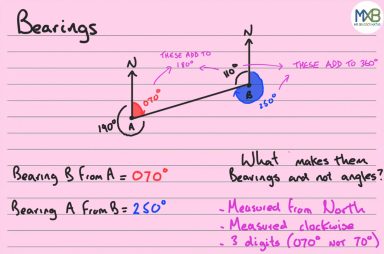 Bearings
MXB
THESE ADD TO
180°
THESE ADD TO 360°
N
N
070°
110°
B
250°
190°
A
Bearing B from A = 070°
Bearing A from B = 250°
What makes them
bearings and not angles?
- Measured from North
- Measured clockwise
- 3 digits (070° NOT 70°)